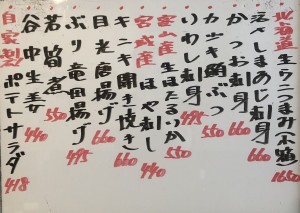 北海道 生ウニつまみ 1650
しまあじ刺身 660
かつお刺身 660
ぶつ 550
いわし刺身 495
富山産 生ほたるいか 550
宮城産 ほや刺し 440
キンキ開き焼き 660
目光唐揚げ 660
ぶり竜田揚げ 495
若筍煮 550
谷中生姜 440
自家製! ポテトサラダ 418